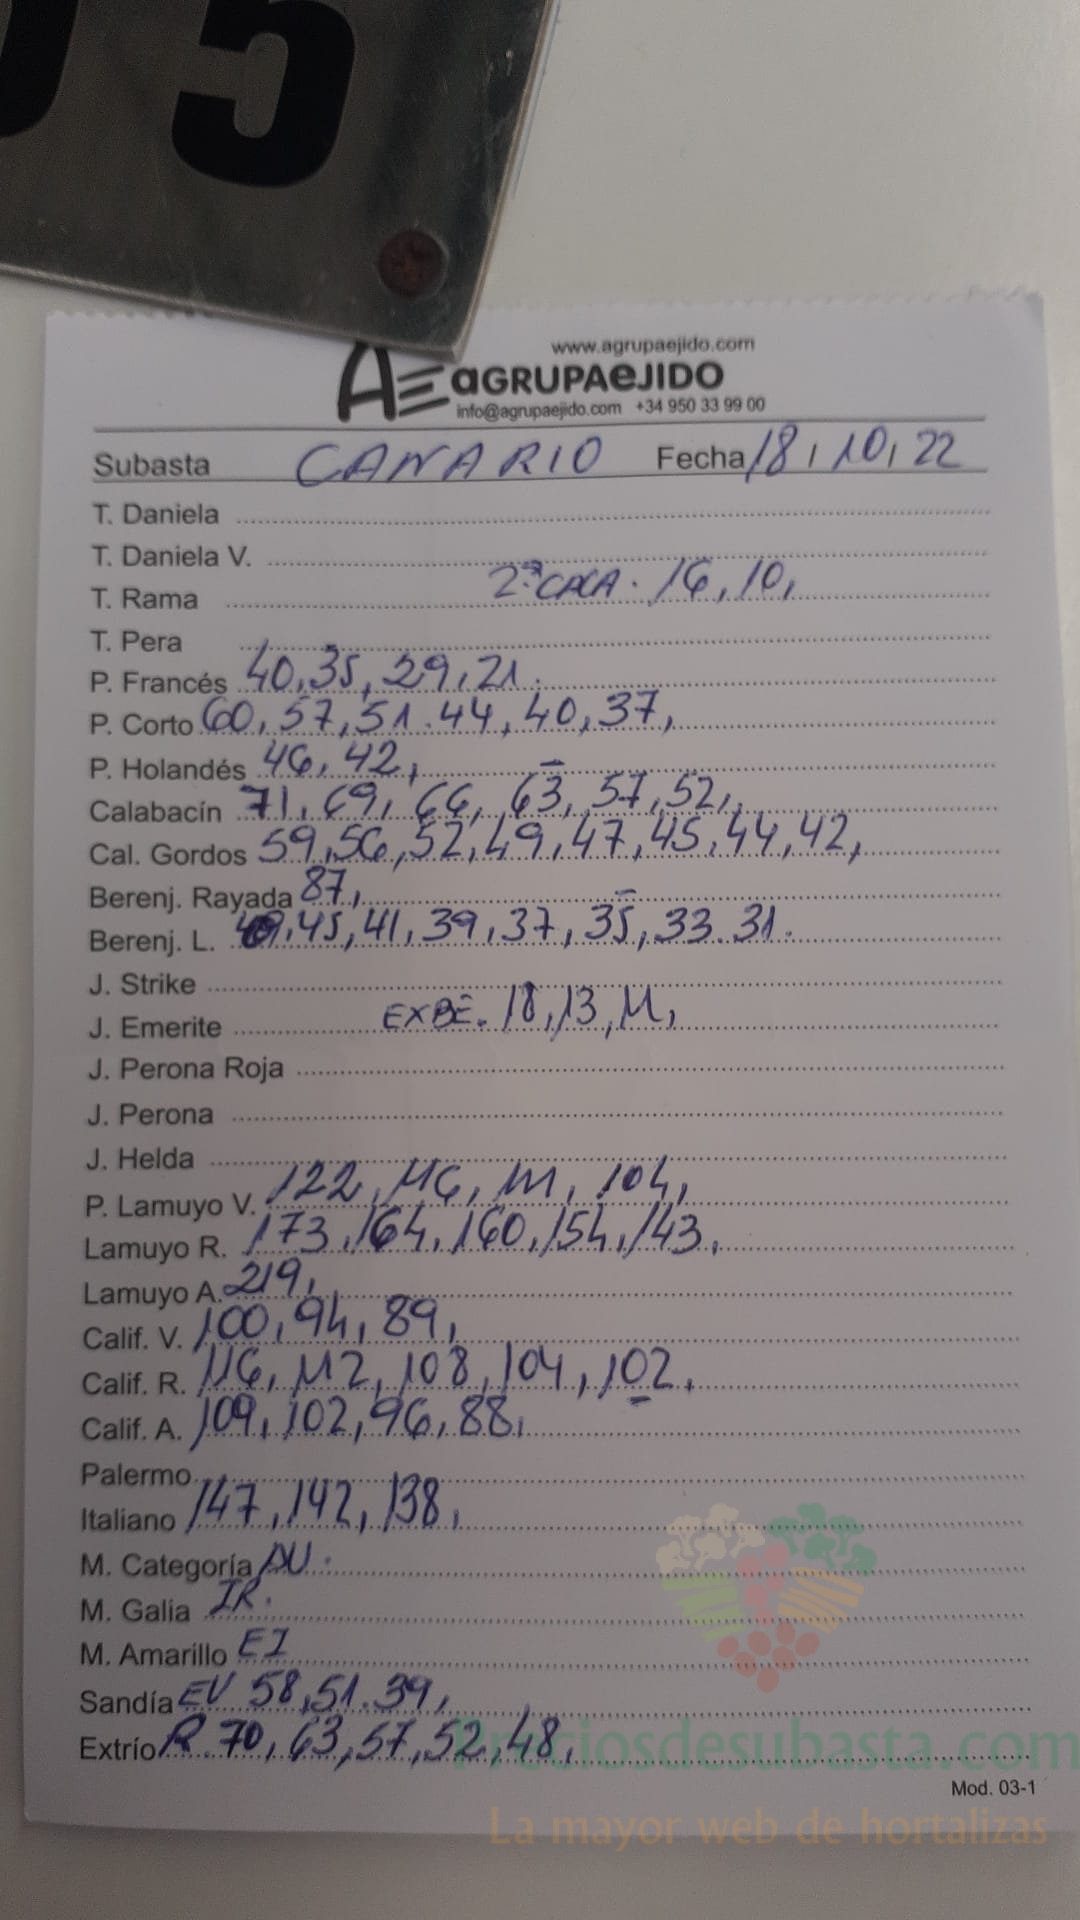 5
www.agrupaejido.com
AE aGRUPAeJIDO
info@agrupaejido.com +34 950 33 99 00
Subasta CANARIO Fecha 18, 10, 22
T. Daniela
T. Daniela V.
T. Rama 2ª CACA. 16, 10,
T. Pera
P. Francés 40, 35, 29, 21.
P. Corto 60, 57, 51. 44, 40, 37,
P. Holandés 46, 42,
Calabacín 71, 69, 66, 63, 57, 52,
Cal. Gordos 59, 56, 52, 49, 47, 45, 44, 42,
Berenj. Rayada 87,
Berenj. L. 45, 41, 39, 37, 35, 33. 31.
J. Strike
J. Emerite EXBE. 18, 13, 11,
J. Perona Roja
J. Perona
J. Helda
P. Lamuyo V. 122, 116, 111, 104,
Lamuyo R. 173, 164, 160, 154, 143,
Lamuyo A. 219,
Calif. V. 100, 94, 89,
Calif. R. 116, 112, 108, 104, 102,
Calif. A. 109, 102, 96, 88,
Palermo
Italiano 147, 142, 138,
M. Categoría AU.
M. Galia IR.
M. Amarillo EI
Sandía EV 58, 51. 39,
Extrío R. 70, 63, 57, 52, 48,
Preciosdesubasta.com
Mod. 03-1
La mayor web de hortalizas